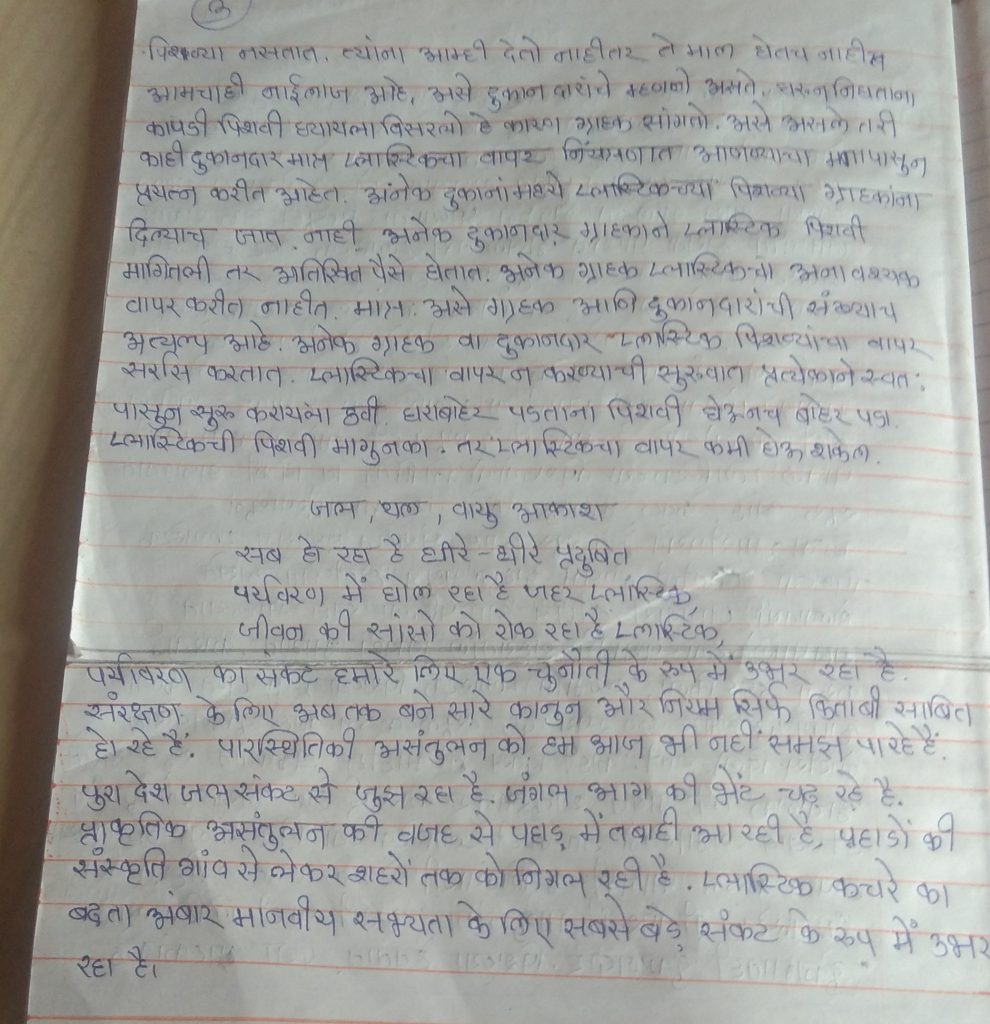 3
पिशव्या नसतात. त्यांना आम्ही देतो नाहीतर ते माल घेतच नाहीत
आमचाही नाईलाज आहे, असे दुकान दारांचे म्हणणे असते. घरून निघताना
कापडी पिशवी घ्यायला विसरलो हे कारण ग्राहक सांगतो. असे असले तरी
काही दुकानदार मात्र प्लास्टिकचा वापर नियंत्रणात आणण्याचा मनापासून
प्रयत्न करीत आहेत. अनेक दुकानांमध्ये प्लास्टिकच्या पिशव्या ग्राहकांना
दिल्याच जात नाही. अनेक दुकानदार ग्राहकाने प्लास्टिक पिशवी
मागितली तर अतिरिक्त पैसे घेतात. अनेक ग्राहक प्लास्टिकचा अनावश्यक
वापर करीत नाहीत. मात्र असे ग्राहक आणि दुकानदारांची संख्याच
अत्यल्प आहे. अनेक ग्राहक वा दुकानदार प्लास्टिक पिशव्यांचा वापर
सर्रास करतात. प्लास्टिकचा वापर न करण्याची सुरुवात प्रत्येकाने स्वतः
पासून सुरू करायला हवी. घराबाहेर पडताना पिशवी घेऊनच बाहेर पडा.
प्लास्टिकची पिशवी मागुनका. तर प्लास्टिकचा वापर कमी होऊ शकेल.
जल, थल, वायु आकाश
सब हो रहा है धीरे-धीरे प्रदुषित
पर्यावरण में घोल रहा है जहर प्लास्टिक,
जीवन की सांसो को रोक रहा है प्लास्टिक,
पर्यावरण का संकट हमारे लिए एक चुनौती के रूप में उभर रहा है.
संरक्षण के लिए अब तक बने सारे कानुन और नियम सिर्फ किताबी साबित
हो रहे हैं. पारिस्थितिकी असंतुलन को हम आज भी नहीं समझ पा रहे हैं.
पुरा देश जल संकट से जुझ रहा है. जंगल आग की भेंट चढ़ रहे है.
प्राकृतिक असंतुलन की वजह से पहाड़ में तबाही आ रही है, पहाडों की
संस्कृति गांव से लेकर शहरों तक को निगल रही है. प्लास्टिक कचरे का
बढ़ता अंबार मानवीय सभ्यता के लिए सबसे बड़े संकट के रूप में उभर
रहा है।